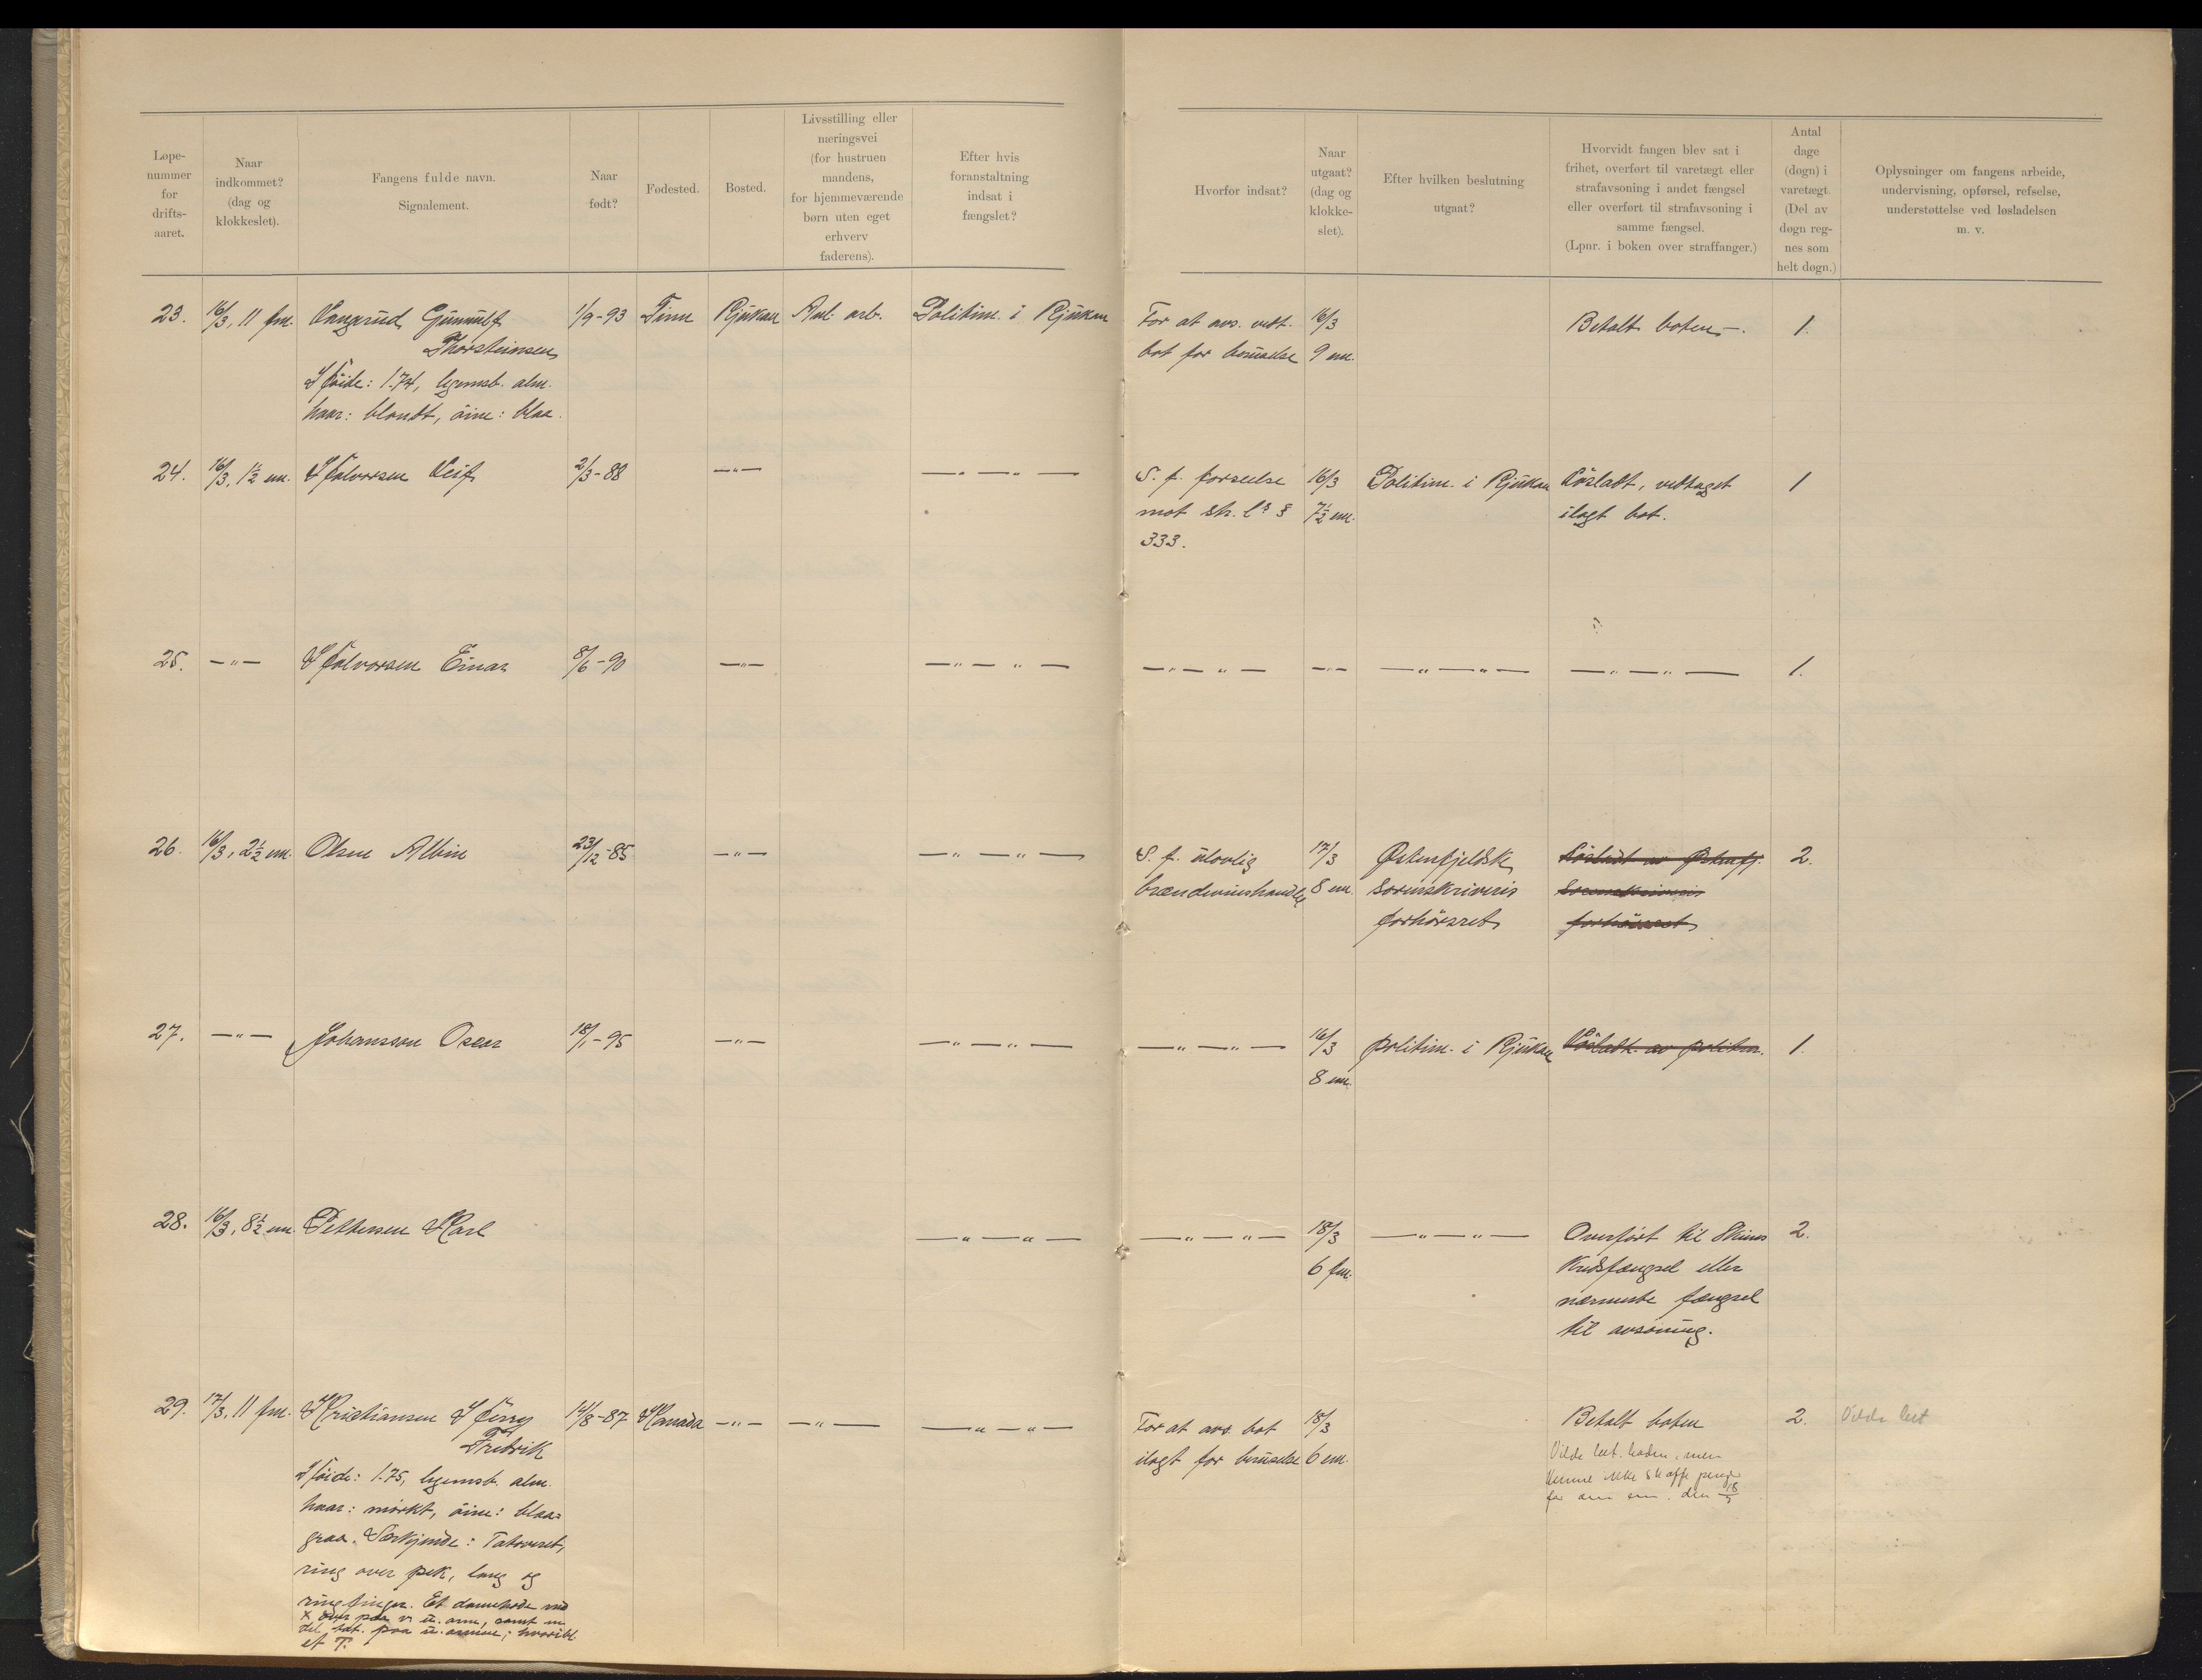 Løpe-
nummer
for
drifts-
aaret.
Naar
indkommet?
(dag og
klokkeslet).
Fangens fulde navn.
Signalement.
Naar
født?
Fødested.
Bosted.
Livsstilling eller
næringsvei
(for hustruen
mandens,
for hjemmeværende
børn uten eget
erhverv
faderens).
Efter hvis
foranstaltning
indsat i
fængslet?
Hvorfor indsat?
Naar
utgaat?
(dag og
klokke-
slet).
Efter hvilken beslutning
utgaat?
Hvorvidt fangen blev sat i
frihet, overført til varetægt eller
strafavsoning i andet fængsel
eller overført til strafavsoning i
samme fængsel.
(Lpnr. i boken over straffanger.)
Antal
dage
(døgn) i
varetægt.
(Del av
døgn reg-
nes som
helt døgn.)
Oplysninger om fangens arbeide,
undervisning, opførsel, refselse,
understøttelse ved løsladelsen
m. v.
23. 16/3, 11 fm. Vangrud Gunnulf 1/9-93 Tinn Rjukan Anl. arb. Politim. i Rjukan For at avs. vedt. 16/3 Betalt boten -. 1.
Thorsteinsen bot for beruselse 9 em.
Høide: 1.74, legemsb. alm.
haar: blondt, öine: blaa.
24. 16/3, 1½ em. Halvorsen Leif 2/3-88 —"— —"—"— S. f. forseelse 16/3 Politim. i Rjukan Löslatt, vedtaget 1
mot str. l's § 7½ em. ilagt bot.
333.
25. —"— Halvorsen Einar 8/6-90 —"— —"—"— —"—"— —"— —"—"— —"—"— 1.
26. 16/3, 2½ em. Olsen Albin 23/12-85 —"— —"—"— S. f. ulovlig 17/3 Østenfjeldske Löslatt av Østenfj. 2.
brændevinshandel 8 em. sorenskriveris sorenskriveris
forhörsret forhörsret
27. —"— Johansson Oscar 18/1-95 —"— —"—"— —"—"— 16/3 politim. i Rjukan Löslatt av politim. 1.
8 em.
28. 16/3, 8½ em. Pettersen Karl —"—"— —"—"— 18/3 —"—"— Overfört til Skiens 2.
6 fm. kredsfængsel eller
nærmeste fængsel
til avsoning.
29. 17/3, 11 fm. Kristiansen Henry 14/8-87 Kanada —"— —"— —"—"— For at avs. bot 18/3 Betalt boten 2. Vilde bet
Fredrik ilagt for beruselse 6 em. Vilde bet. boden, men
Høide: 1.75, legemsb. alm. kunne ikke skaffe penge
haar: mörkt, öine: blaa= før den 18/3
graa. Særkjende: Tatoveret,
ring over pek, lang og
ringfinger. Et damehode med
x over paa v. u. arm, samt en
del tat. paa u. armene, hvoribl.
et T.